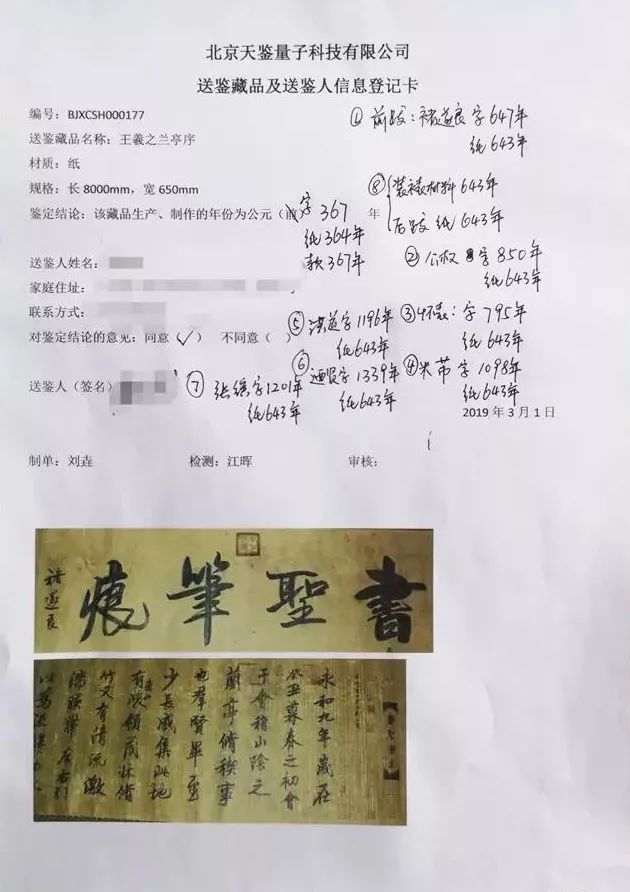 北京天鉴量子科技有限公司
送鉴藏品及送鉴人信息登记卡
编号：BJXCSH000177
① 前跋：褚遂良 字 647年
纸 643年
送鉴藏品名称：王羲之兰亭序
材质：纸
规格：长 8000mm，宽 650mm
⑧ 装裱材料 643年
后跋 纸 643年
鉴定结论：该藏品生产、制作的年份为公元（前） 字 367 年
纸 364年
款 367年
② 公权 字 850年
纸 643年
送鉴人姓名：
家庭住址：
联系方式：
⑤ 字 1196年
纸 643年
③ 怀素：字 795年
纸 643年
对鉴定结论的意见：同意（✓） 不同意（ ）
⑥ 字 1339年
纸 643年
④ 米芾 字 1098年
纸 643年
送鉴人（签名）
⑦ 字 1201年
纸 643年
2019 年 3 月 1 日
制单：刘垚 检测：江晖 审核：
書聖筆痕
褚遂良
永和九年歲在
癸丑暮春之初會
于會稽山陰之
蘭亭脩稧事
也羣賢畢至
少長咸集此地
有峻領茂林脩
竹又有清流激
湍暎帶左右引